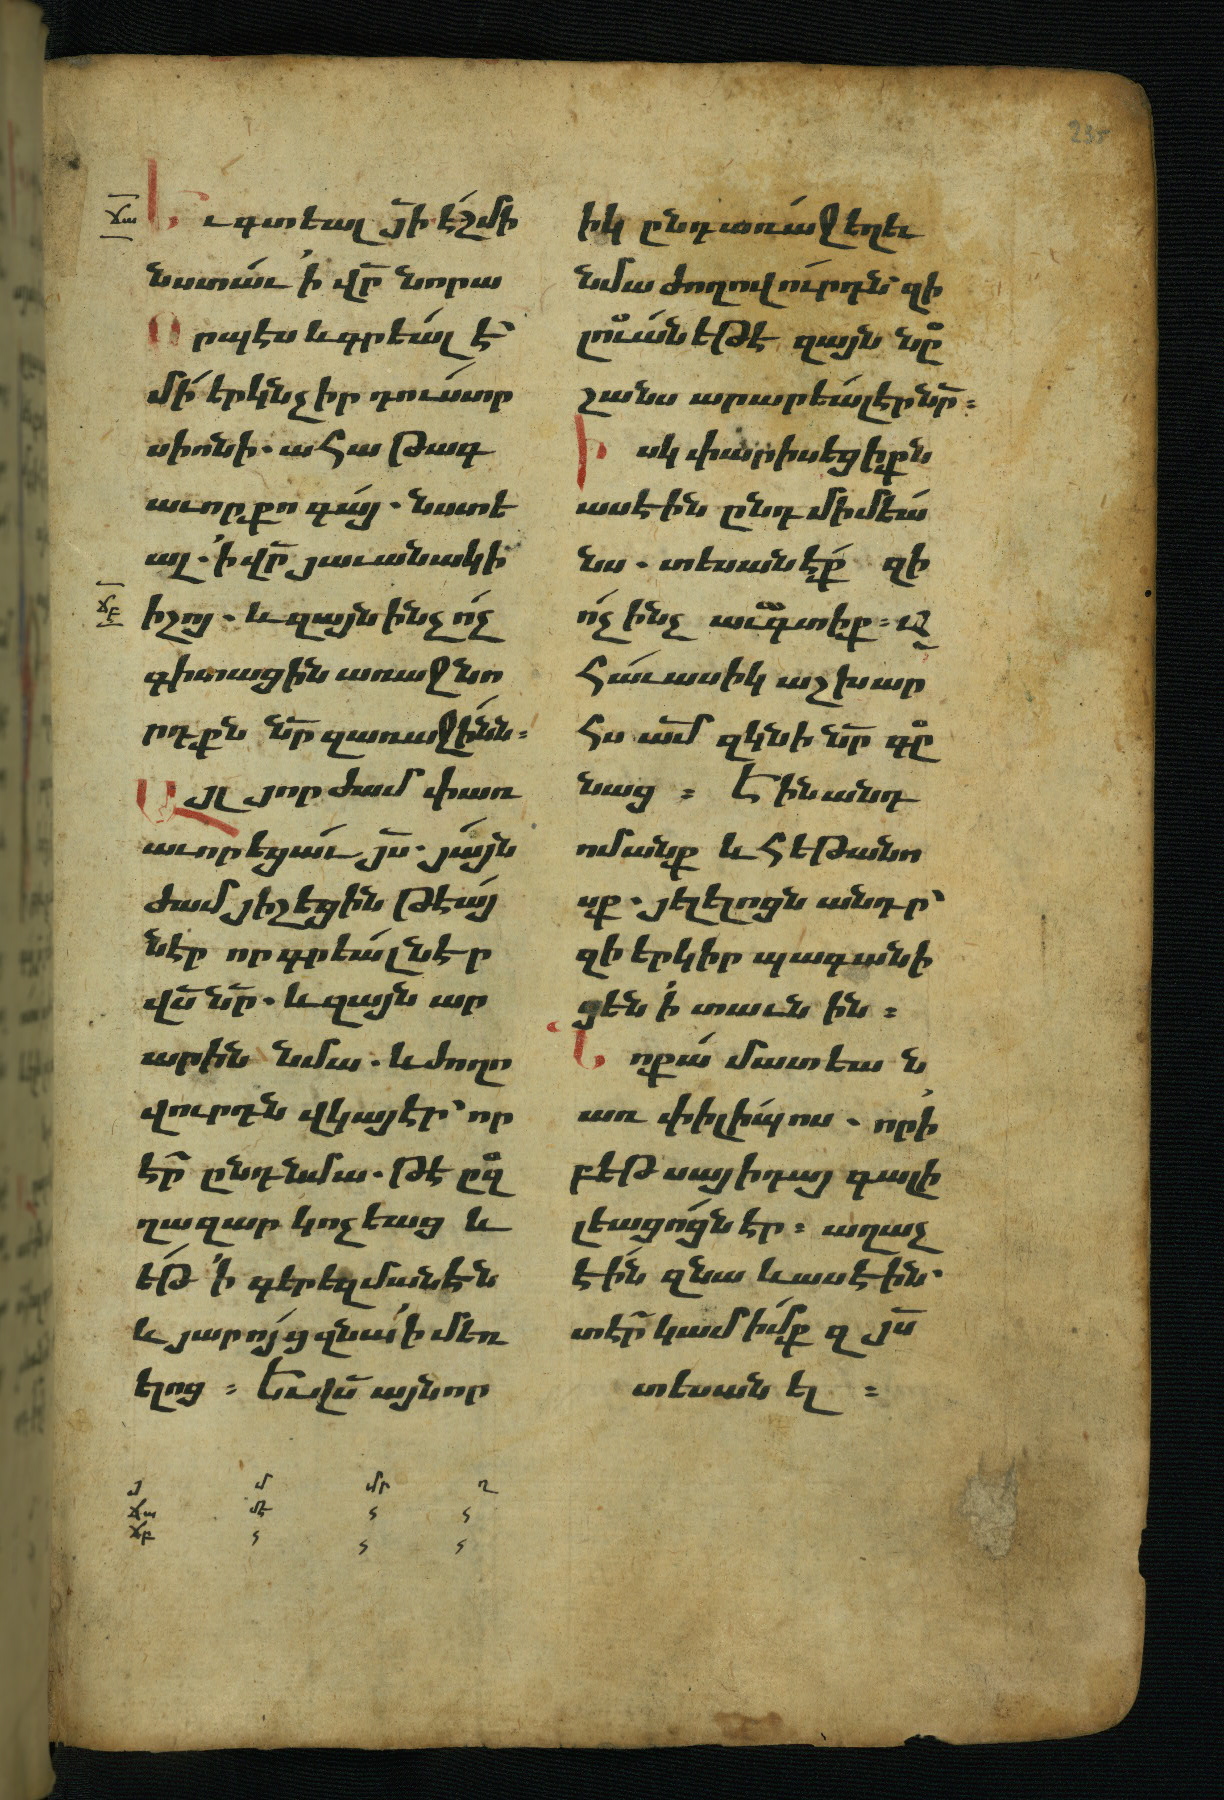 ճա
Եւ գտեալ յի էշ մի
նստաւ ՛ի վր նորա
Որպէս և գրեալ է՝
մի երկնչիր դուստր
սիոնի. ահա թագ
աւոր քո գայ. նստե
ալ. ՛ի վր յաւանակի
ճբ
իշոյ. և զայն ինչ ոչ
գիտացին առաջնո
րդքն նր զառաջինն:
Այլ յորժամ փառ
աւորեցաւ յս. յայն
ժամ յիշեցին թէ այ
նէր որ գրեալն էր
վս նր. և զայն ար
արին նմա. և ժողո
վուրդն վկայէր՝ որ
էր ընդ նմա. թէ ըզ
ղազար կոչեաց և
եթ ՛ի գերեզմանէն
և յարոյց զնա ՛ի մեռ
ելոց: Եւ վս այնոր
իկ ընդառաջ ելեւ
նմա ժողովուրդն՝ զի
լուան եթէ զայն նը
շանս արարեալ էր նր:
Իսկ փարիսեցիքն
ասէին ընդ միմեա
նս. տեսանէք զի
ոչ ինչ աւգտիք: Ա
հաւասիկ աշխար
հս ամ զկնի նր գը
նաց: Էին անդ
ոմանք և հեթանո
սք. յելելոցն անդր՝
զի երկիր պագանի
ցեն ՛ի տաւն ին:
Նոքա մատեան
առ փիլիպոս. որ ՛ի
բեթսայիդայ գալի
լեացոցն էր: աղաչ
էին զնա և ասէին՝
տէր կամիմք զ յս
տեսանել:
ճա
ճբ